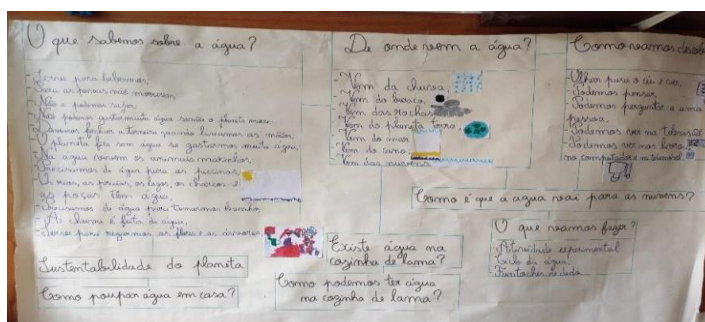 O que sabemos sobre a água?
- Serve para bebermos,
- Sem as pessoas não
- Não a podemos sujar,
- Não podemos gastar muita água senão o planeta morre.
- Devemos fechar a torneira quando lavamos as mãos.
- O planeta fica sem água se gastarmos muita água.
- Na água vivem os animais marinhos,
- Precisamos de água para as piscinas,
- Os rios, as piscinas, os lagos, os charcos e
as poças têm água,
- Precisamos de água para tomarmos banho,
- A chuva é feita de água,
- Serve para regarmos as flores e as árvores
Sustentabilidade do planeta
Como poupar água em casa?
De onde vem a água?
- Vem da chuva,
- Vem do buraco,
- Vem das rochas
- Vem do planeta terra,
- Vem do mar
- Vem do cano,
- Vem das nuvens.
Existe água na
cozinha de lama?
Como podemos ter água
na cozinha de lama?
Como vamos
- Olhar para o céu e ver,
- Podemos pensar,
- Podemos perguntar a uma
pessoa.
- Podemos ver na
- Podemos ver nos livros,
no computador e na televisão
Como é que a água vai para as nuvens?
O que vamos fazer?
- Atividade experimental
- Ciclo da água,
- Fantoches de dedo